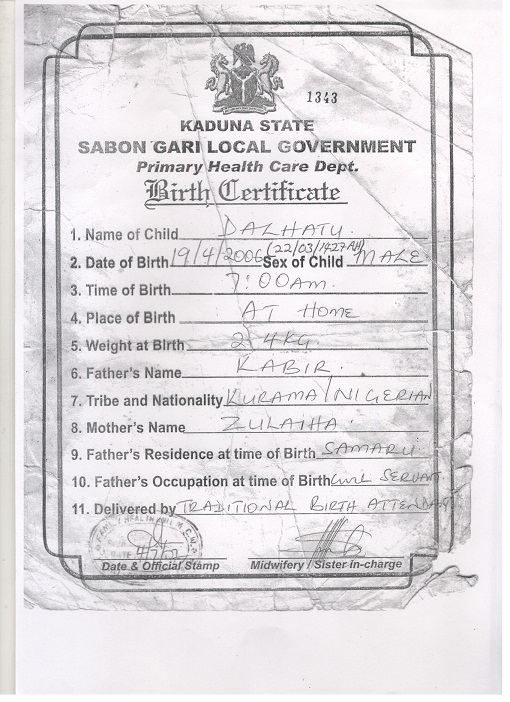 1343
KADUNA STATE
SABON GARI LOCAL GOVERNMENT
Primary Health Care Dept.
Birth Certificate
1. Name of Child DALHATU.
2. Date of Birth 19/4/2006 (22/03/1427AH) Sex of Child MALE
3. Time of Birth 7:00am.
4. Place of Birth AT HOME
5. Weight at Birth 2.4KG.
6. Father's Name KABIR.
7. Tribe and Nationality KURAMA/NIGERIAN
8. Mother's Name ZULAIHA.
9. Father's Residence at time of Birth SAMARU
10. Father's Occupation at time of Birth CIVIL SERVANT
11. Delivered by TRADITIONAL BIRTH ATTENDANT
Date & Official Stamp Midwifery / Sister in-charge